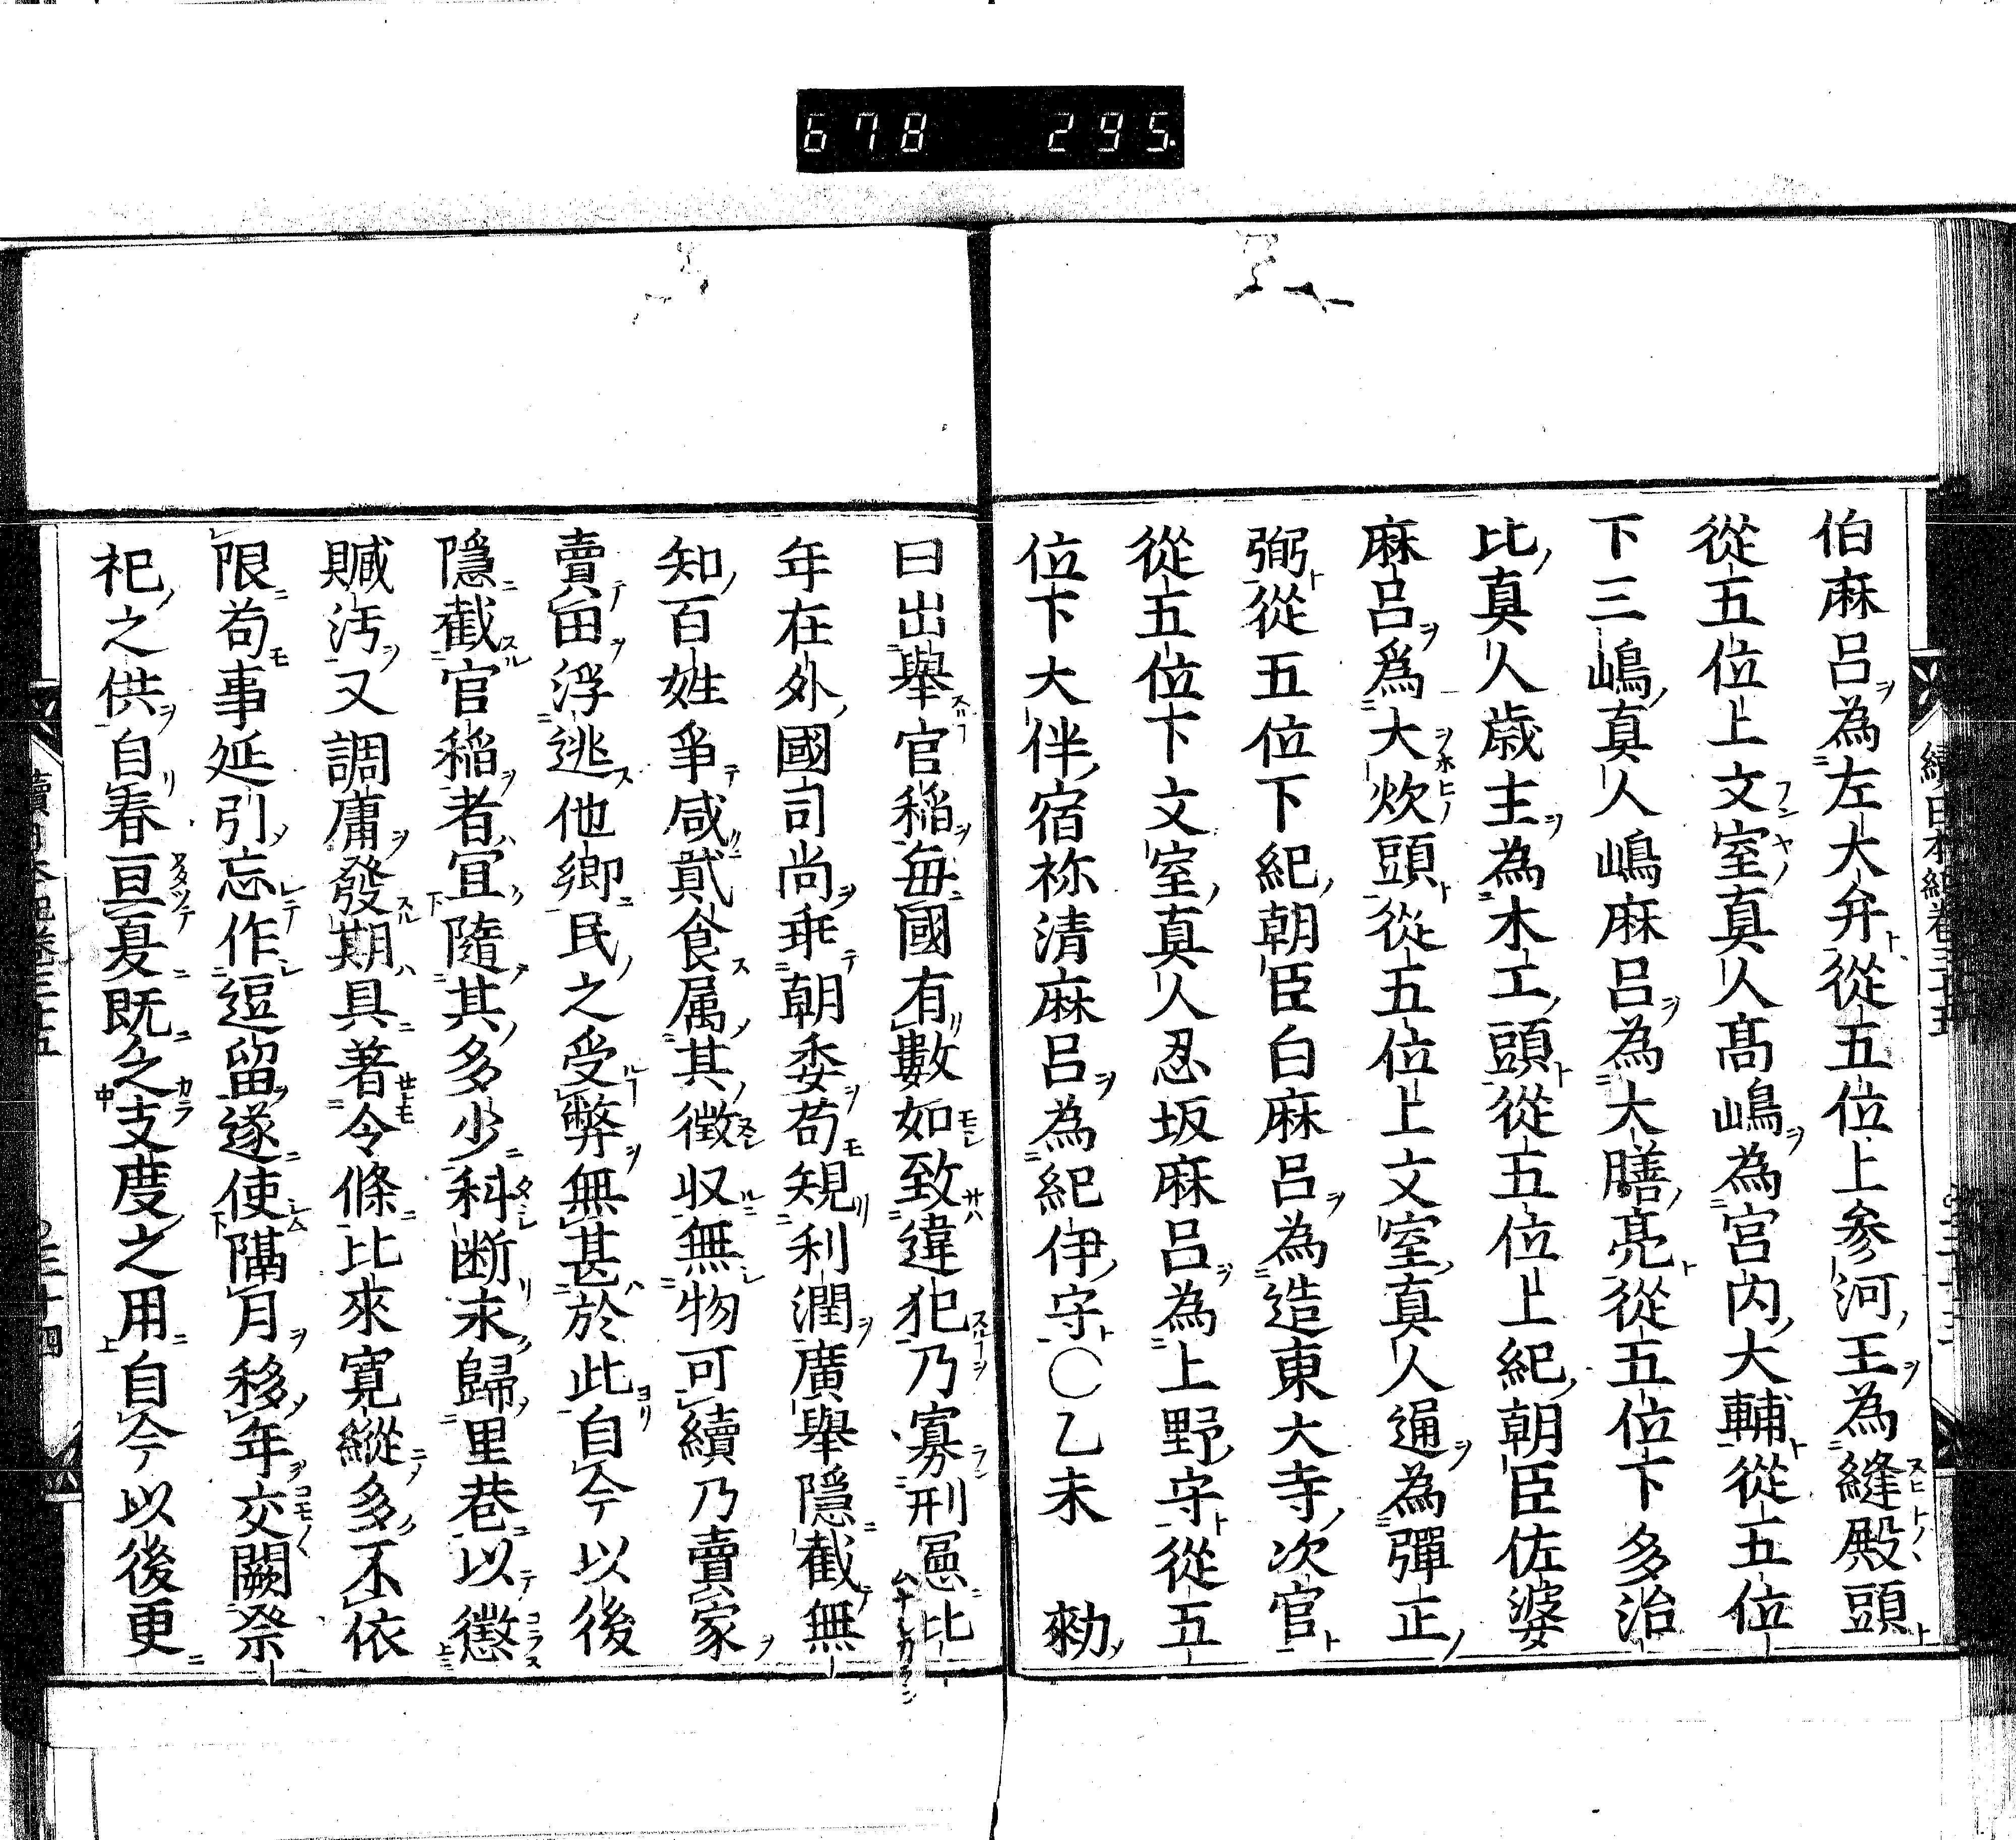 678 295
伯麻呂為左大弁從五位上參河王為縫殿頭
從五位上文室真人髙嶋為宮内大輔從五位
下三嶋真人嶋麻呂為大膳亮從五位下多治
比真人歳主為木工頭從五位上紀朝臣佐婆
麻呂爲大炊頭從五位上文室真人遍為彈正
弼從五位下紀朝臣白麻呂為造東大寺次官
從五位下文室真人忍坂麻呂為上野守從五
位下大伴宿祢清麻呂為紀伊守〇乙未 勑
曰出舉官稲毎國有數如致違犯乃寡刑憲比
年在外國司尚乖朝委苟規利潤廣舉隱截無
知百姓爭咸貳食属其徴収無物可續乃賣家
賣田浮逃他郷民之受弊無甚於此自今以後
隱截官稲者宜隨其多少科断永歸里巷以懲
贓汚又調庸發期具著令條比來寛縱多不依
限苟事延引忘作逗留遂使隔月移年交闕祭
祀之供自春亘夏既乏支度之用自今以後更